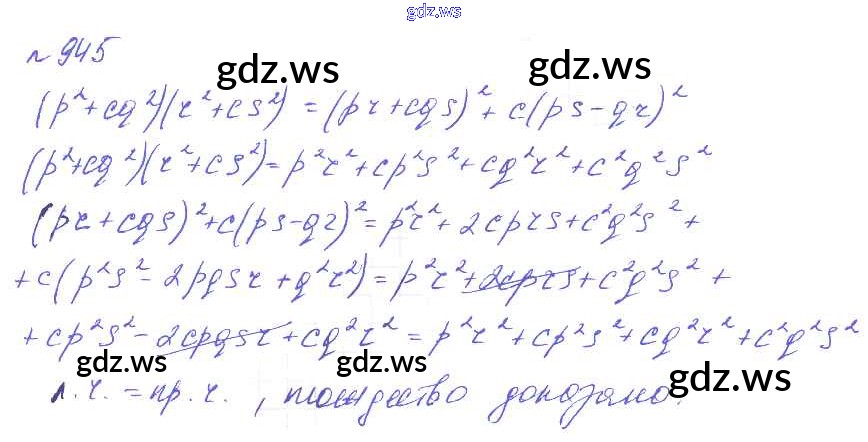 gdz.ws
№ 945
gdz.ws
gdz.ws
(p²+cq²)(r²+cs²) = (pr+cqs)²+c(ps-qr)²
(p²+cq²)(r²+cs²)=p²r²+cp²s²+cq²r²+c²q²s²
(pr+cqs)²+c(ps-qr)²=p²r²+2cprs+c²q²s²+
+c(p²s²-2pqsr+q²r²)=p²r²+2cprs+c²q²s²+
+cp²s²-2cpqsr+cq²r²=p²r²+cp²s²+cq²r²+c²q²s²
gdz.ws
gdz.ws
gdz.ws
л.ч. = пр.ч., тождество доказано.